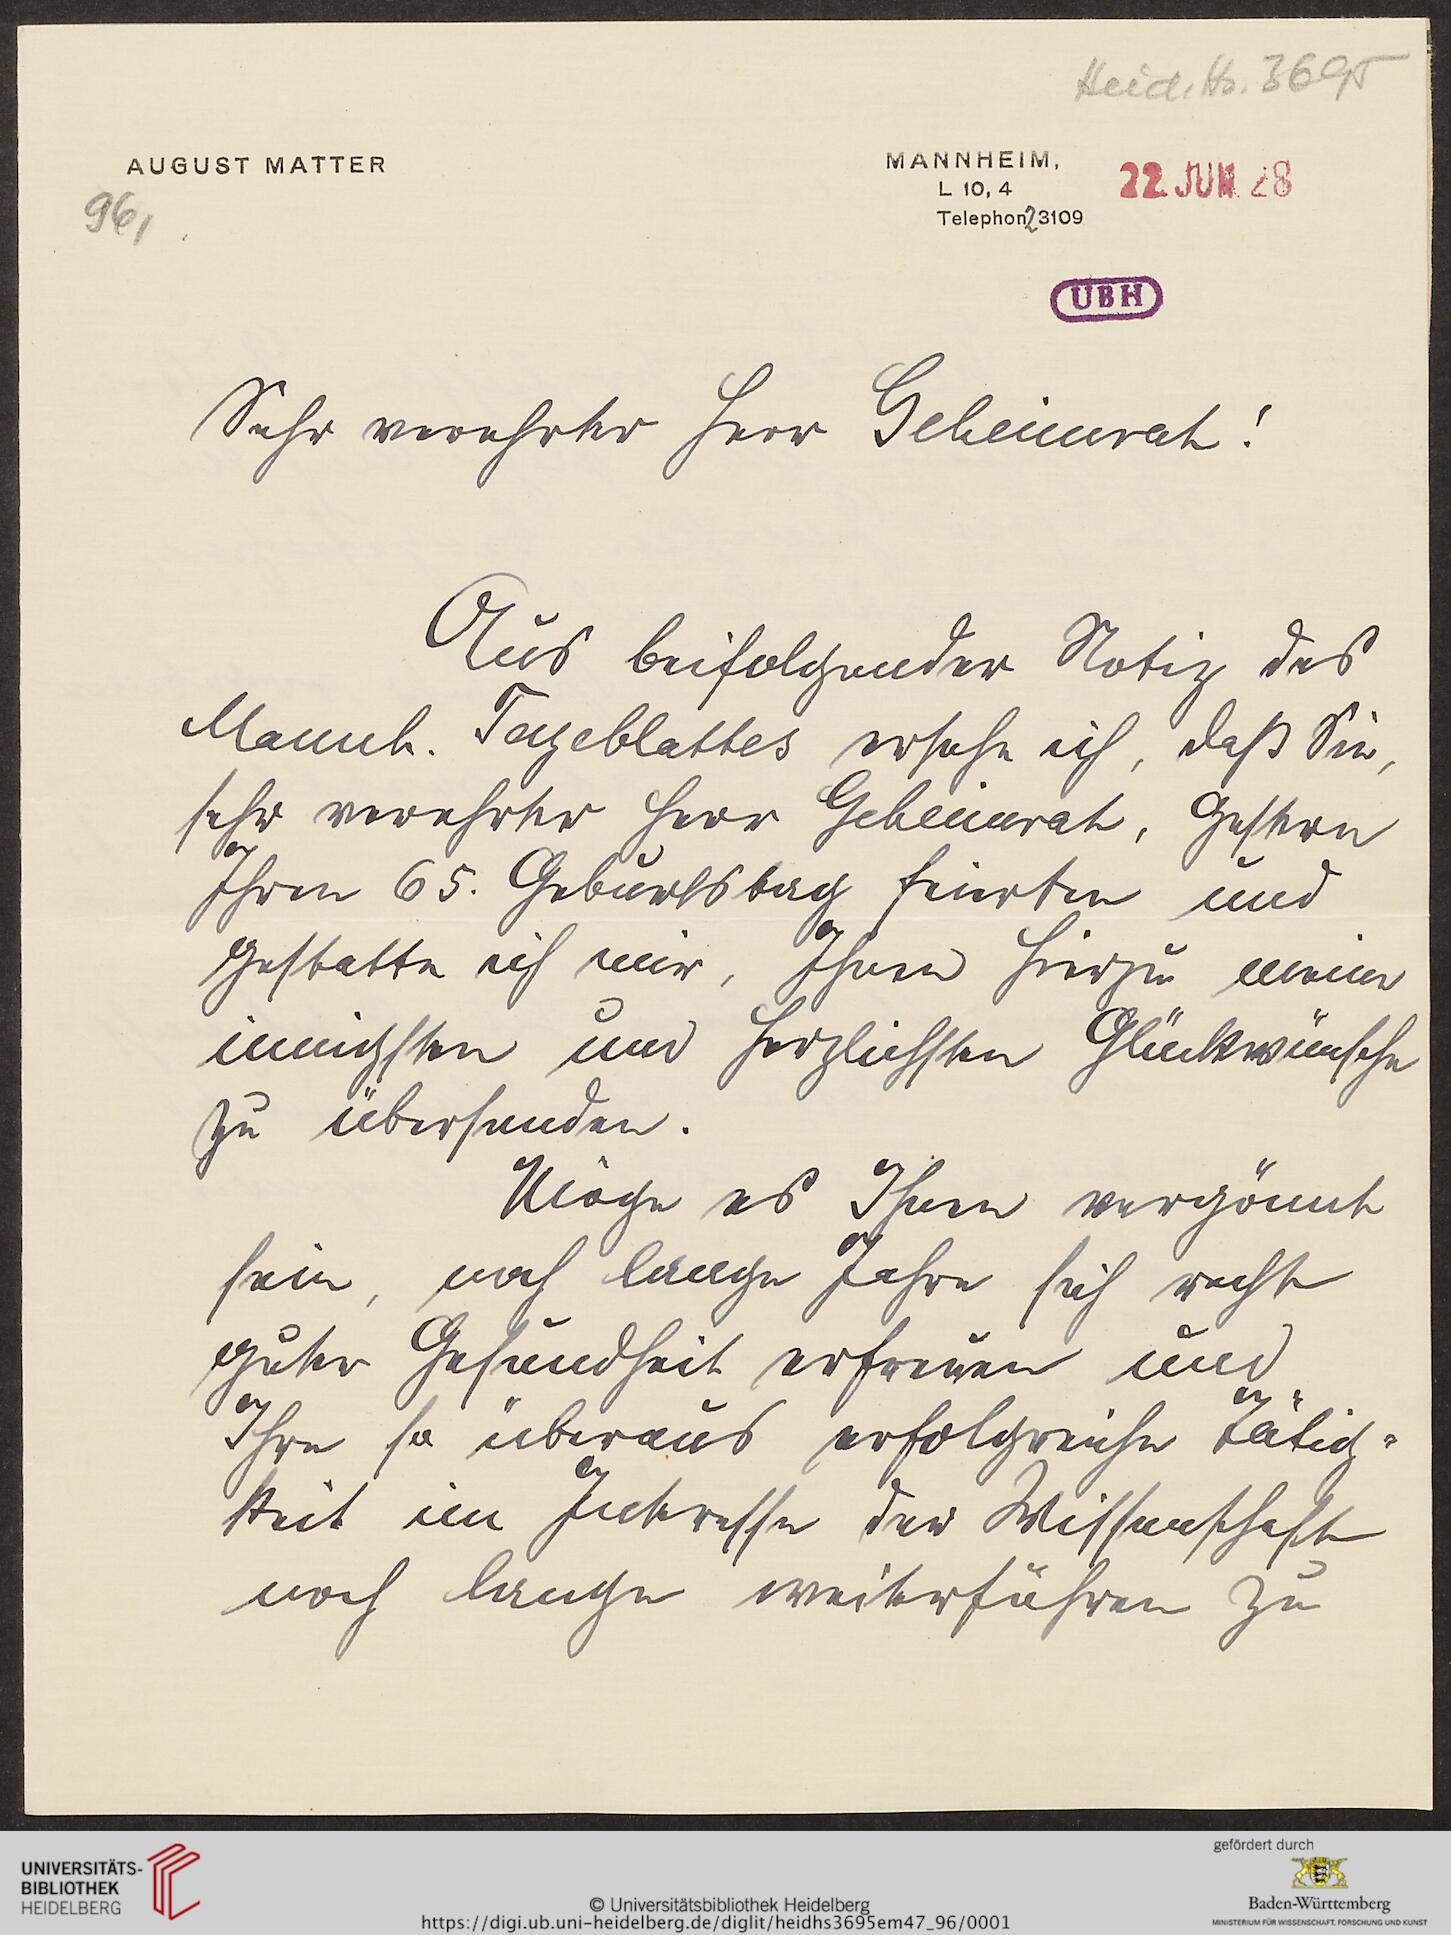 Heid. Hs. 3695
AUGUST MATTER
MANNHEIM,
L 10, 4
Telephon 23109
22. JUN. 28
96,
UBH
Sehr verehrter Herr Geheimrat!
Aus beifolgender Notiz des
Mannh. Tageblattes ersehe ich, daß Sie,
sehr verehrter Herr Geheimrat, gestern
Ihren 65. Geburtstag feierten und
gestatte ich mir, Ihnen hierzu meine
innigsten und herzlichsten Glückwünsche
zu übersenden.
Möge es Ihnen vergönnt
sein, noch lange Jahre sich recht
guter Gesundheit erfreuen und
Ihre so überaus erfolgreiche Tätig-
keit im Interesse der Wissenschaft
noch lange weiterführen zu
UNIVERSITÄTS-
BIBLIOTHEK
HEIDELBERG
© Universitätsbibliothek Heidelberg
https://digi.ub.uni-heidelberg.de/diglit/heidhs3695em47_96/0001
gefördert durch
Baden-Württemberg
MINISTERIUM FÜR WISSENSCHAFT, FORSCHUNG UND KUNST